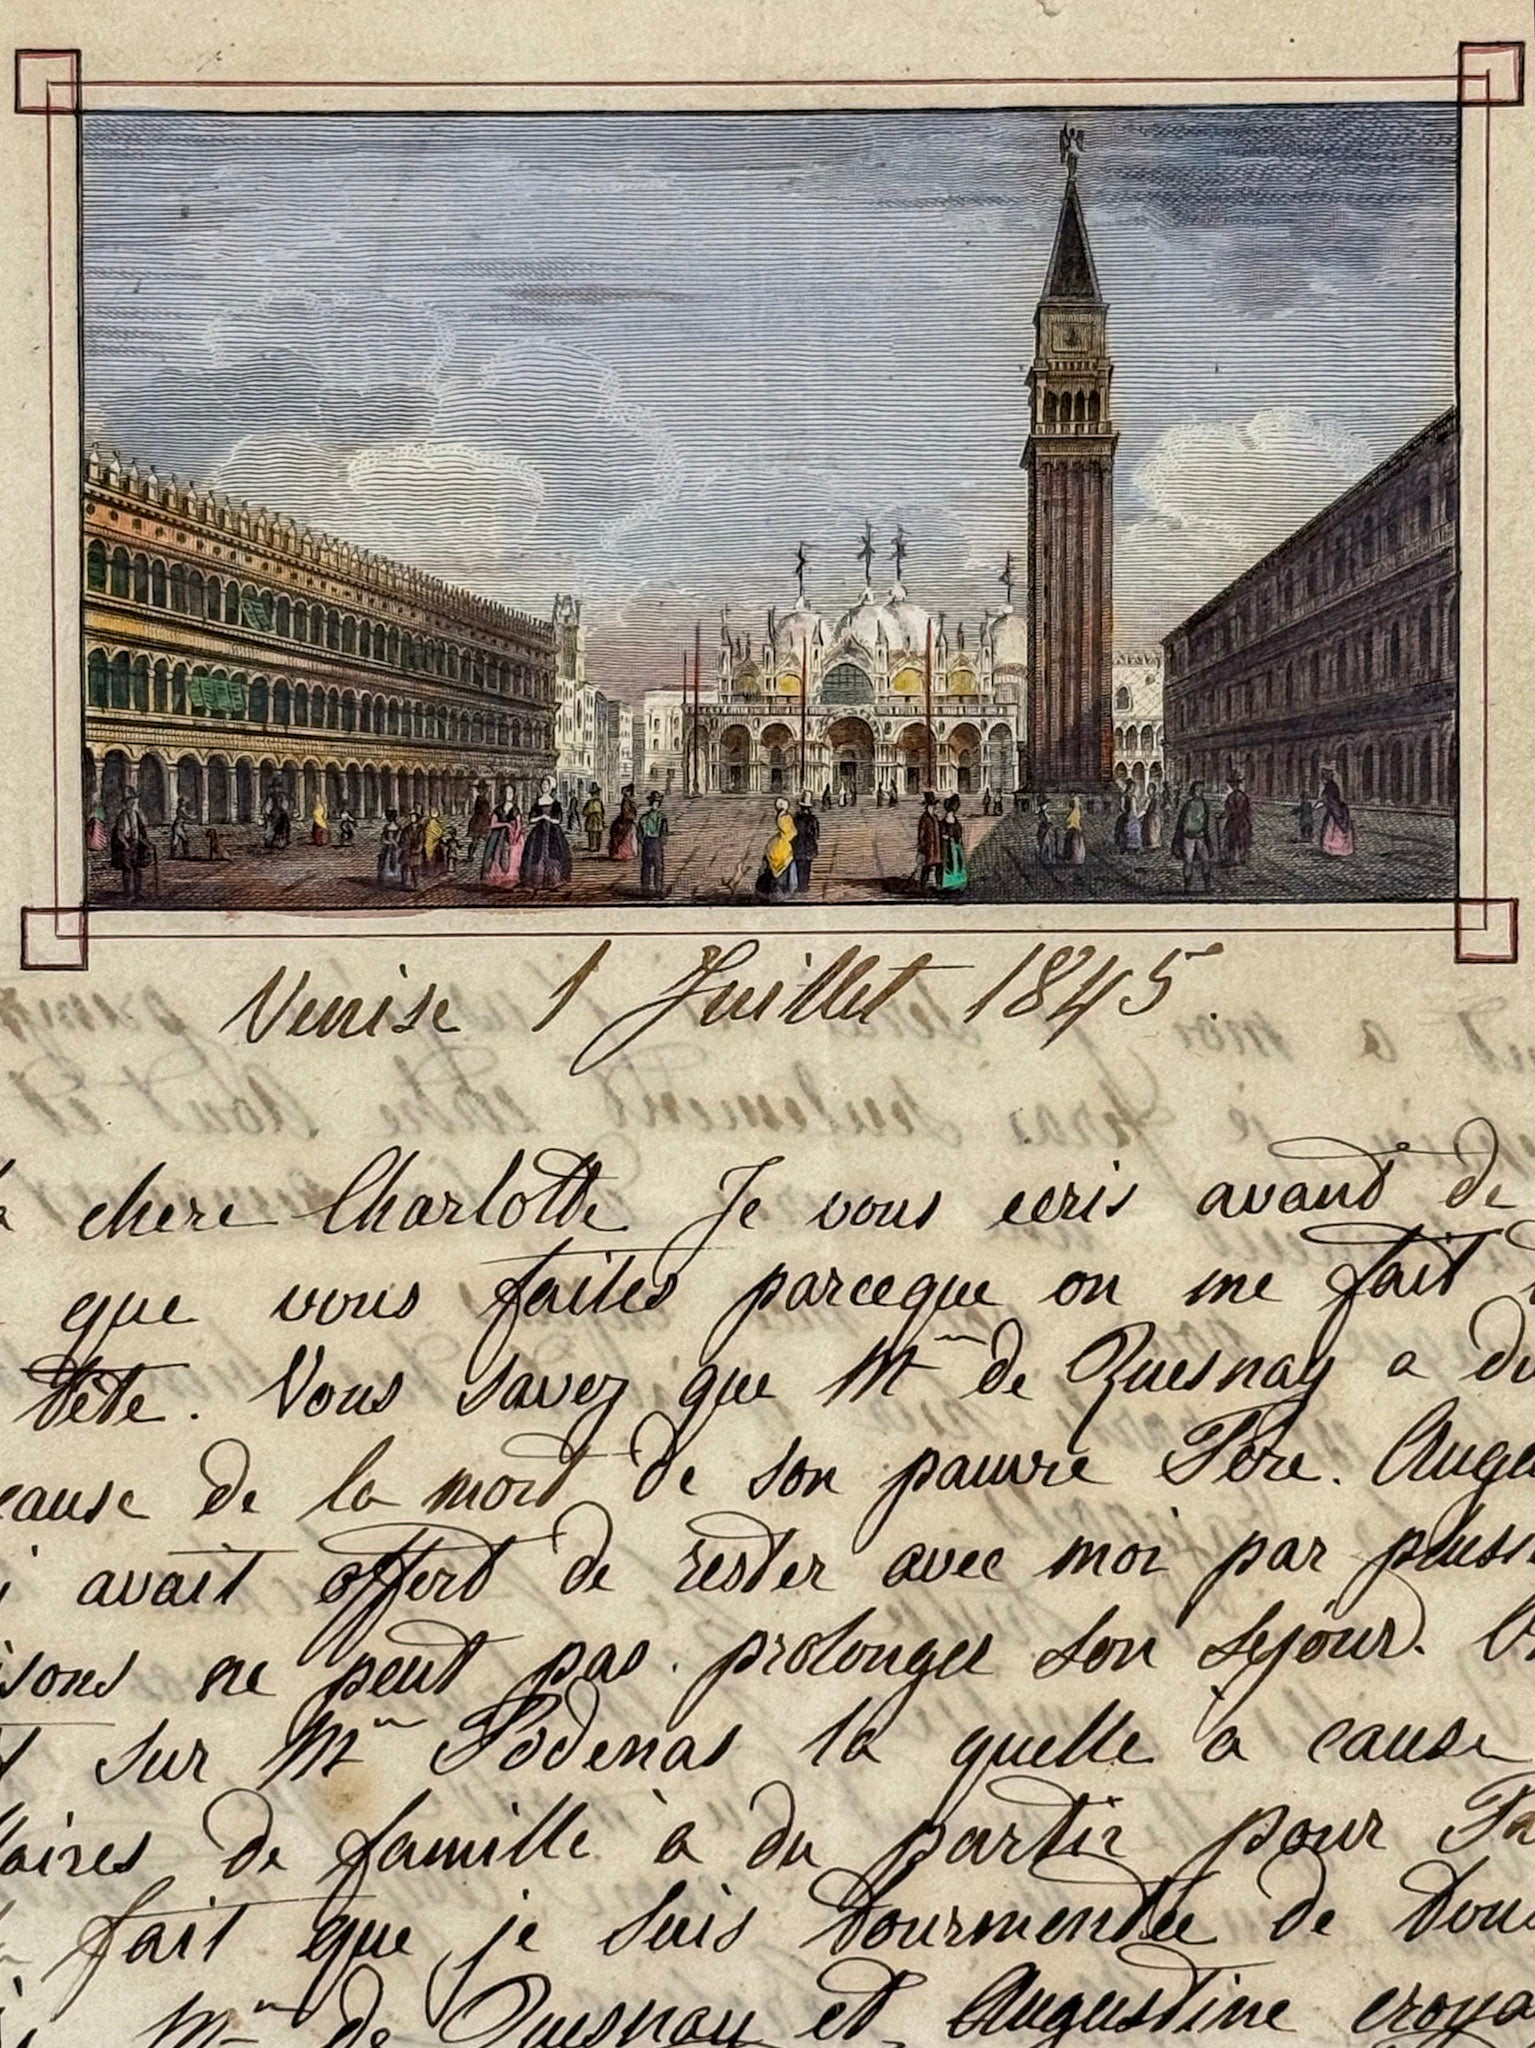 Venise 1 Juillet 1845.
chere Charlotte Je vous ecris avant de
que vous faites parceque on me fait
tête. Vous savez que Mme de Quesnay a du
cause de la mort de son pauvre Père.
avait offert de rester avec moi par
ne peut pas prolonger son sejour.
sur Mme Podenas la quelle a cause
de famille à du partir pour
fait que je suis tourmentée de
Mme de Quesnay et Augustine